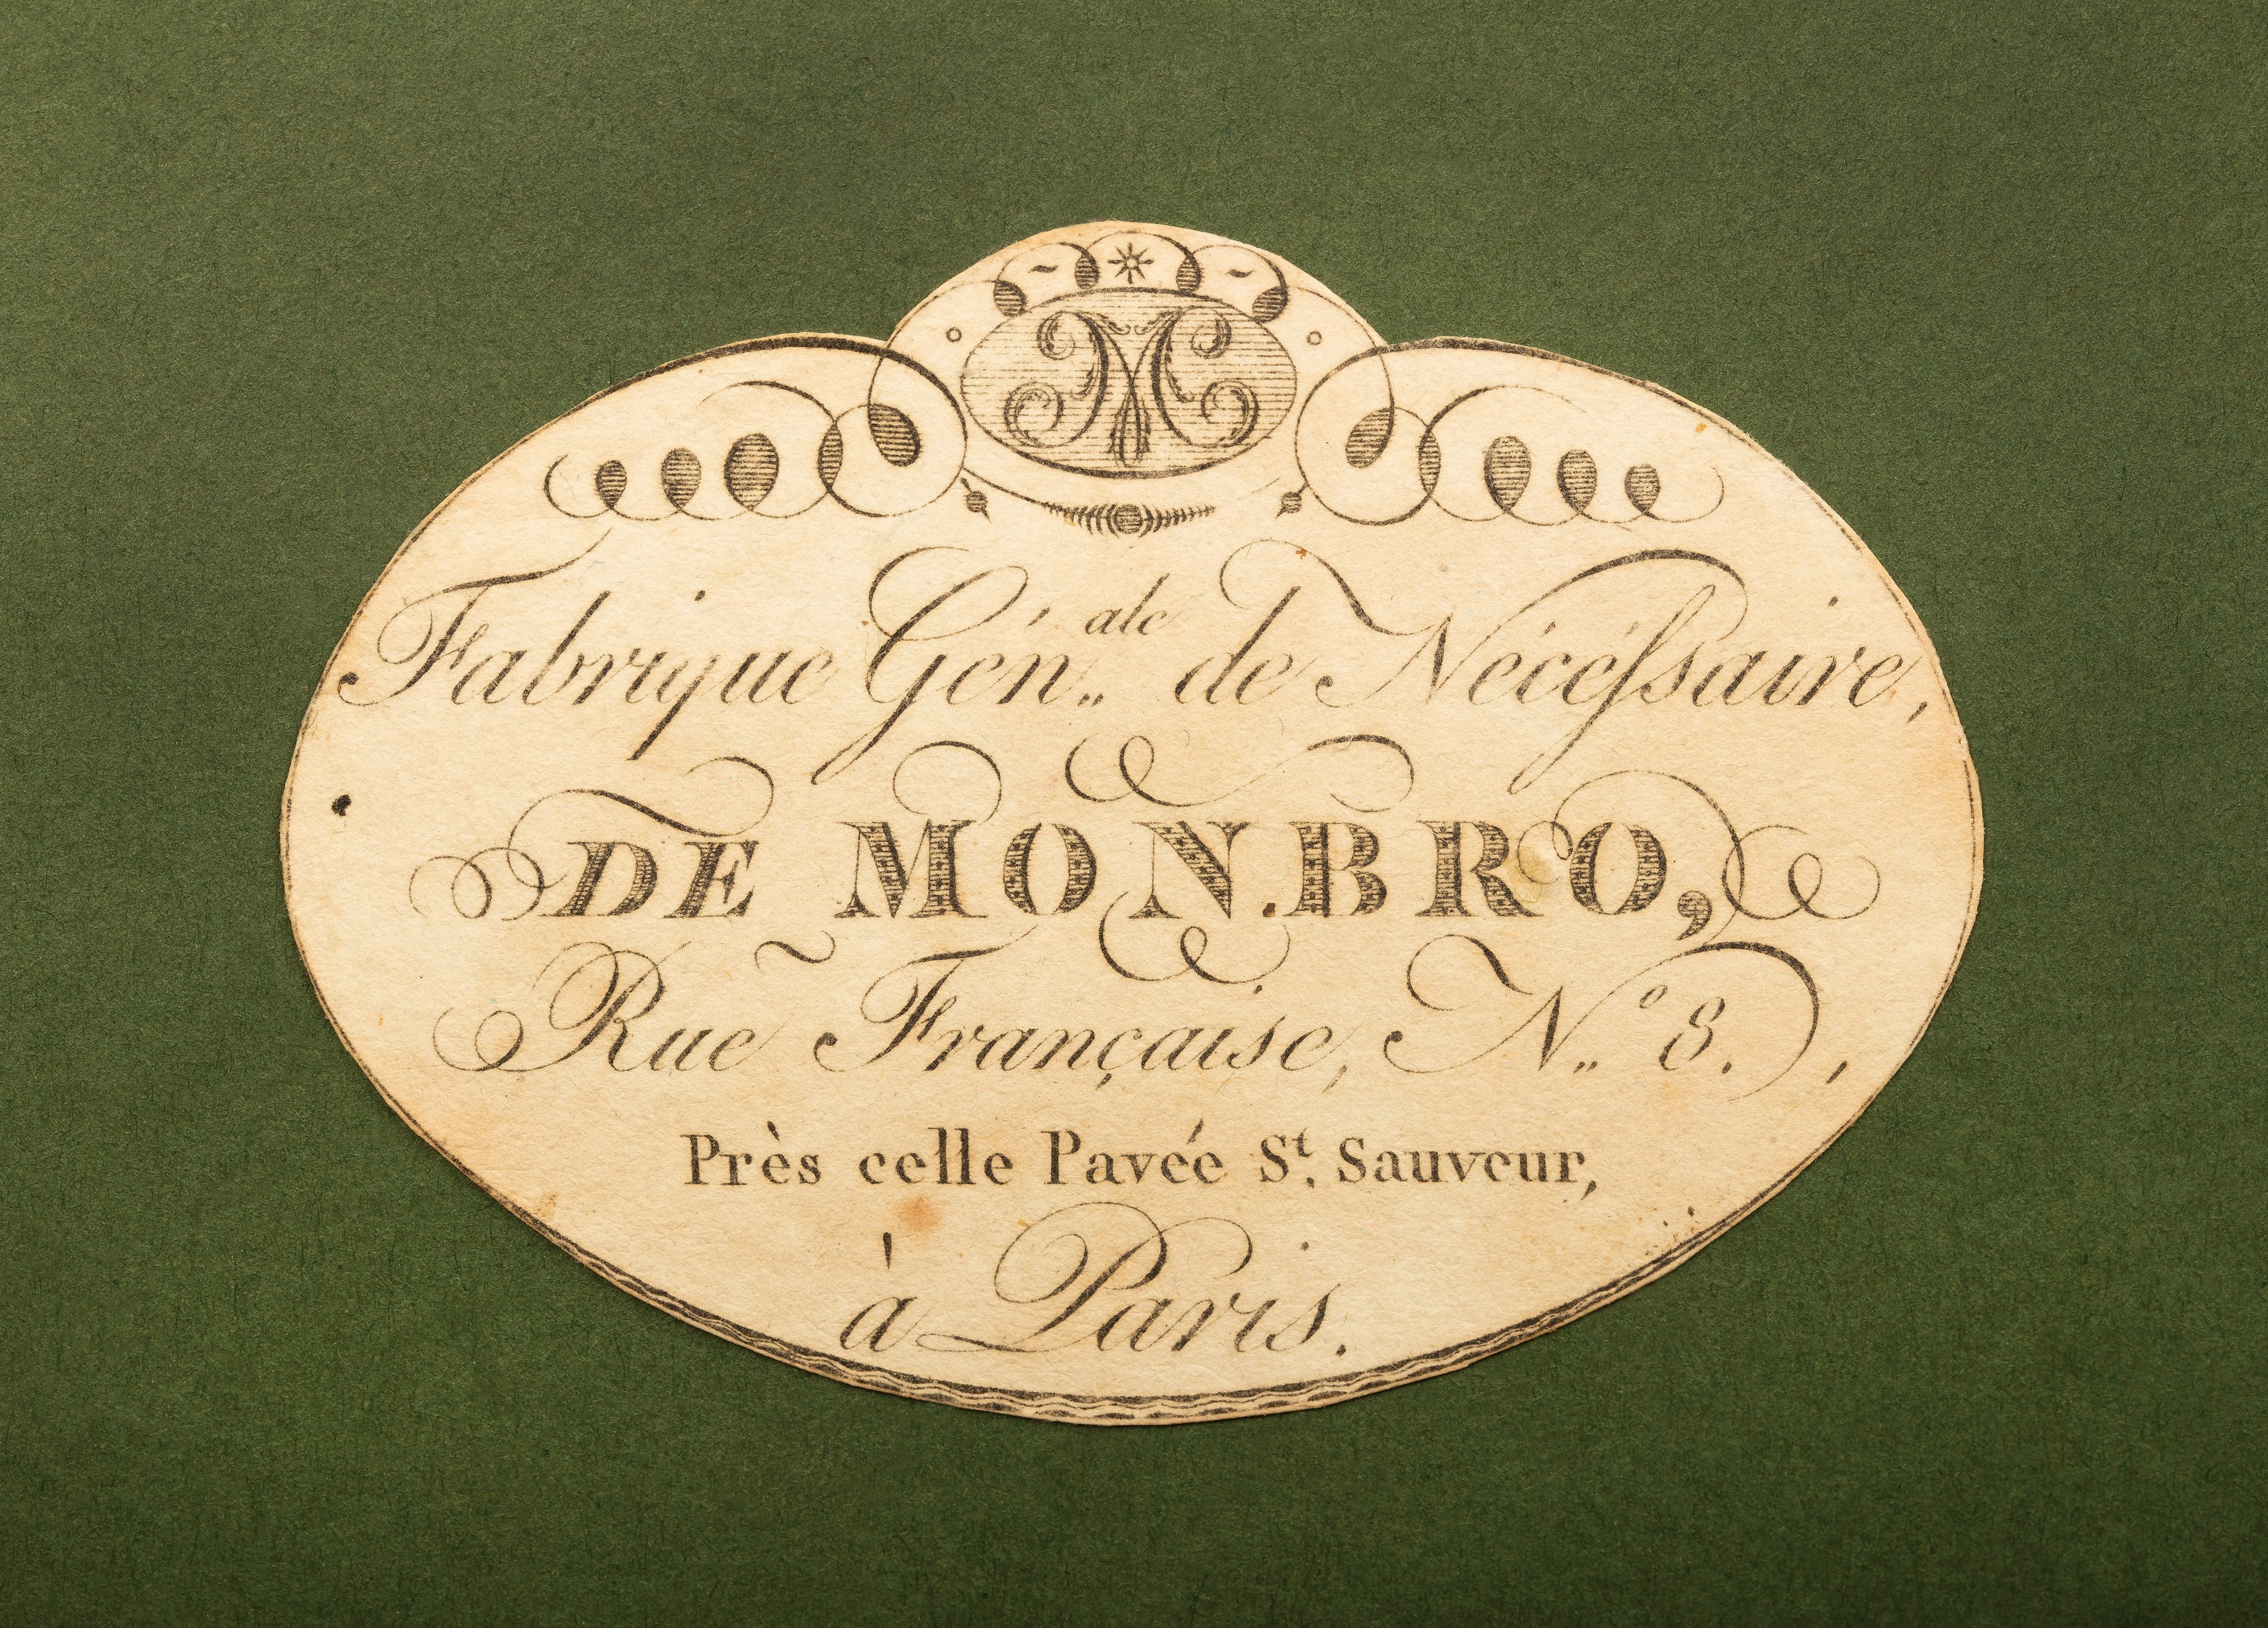 Fabrique Gén.ale de Nécéſsaire,
DE MONBRO,
Rue Française, N.o 8.,
Près celle Pavée St. Sauveur,
à Paris.